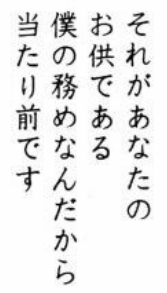 それがあなたの
お供である
僕の務めなんだから
当たり前です